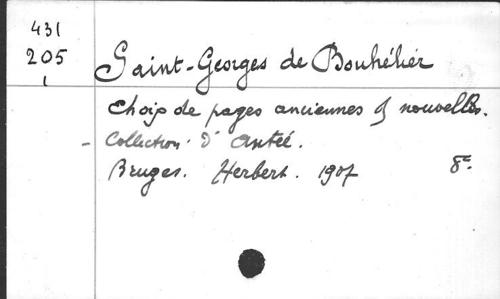 431
205
1
Saint-Georges de Bouhélier
Choix de pages anciennes & nouvelles.
- Collection d'Antée.
Bruges. Herbert. 1907 8°